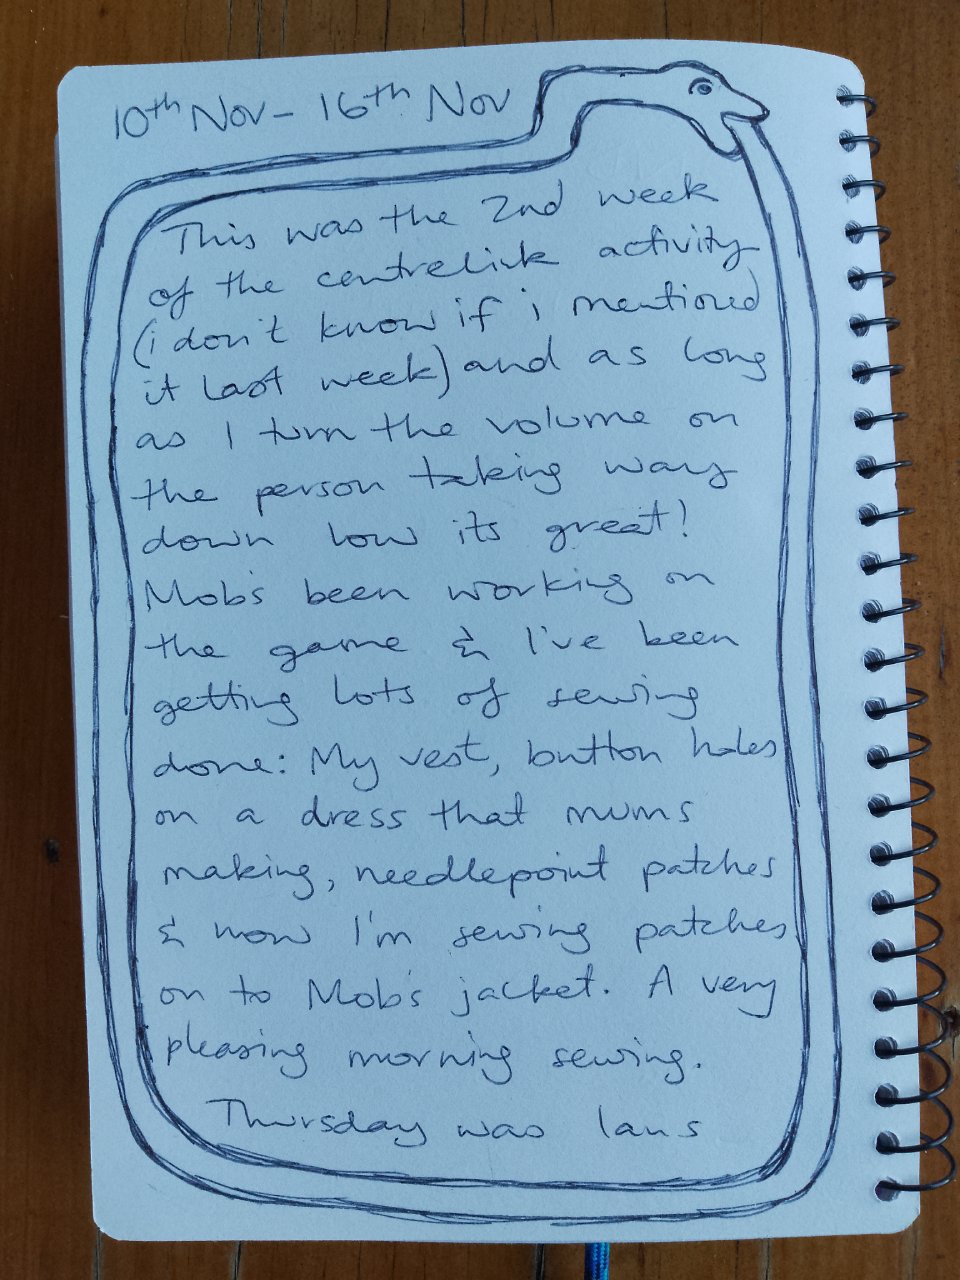 10th Nov - 16th Nov
This was the 2nd week
of the centrelink activity
(i don't know if i mentioned
it last week) and as long
as I turn the volume on
the person talking way
down low its great!
Mob's been working on
the game & I've been
getting lots of sewing
done: My vest, button holes
on a dress that mums
making, needlepoint patches
& now I'm sewing patches
on to Mob's jacket. A very
pleasing morning sewing.
Thursday was Ians